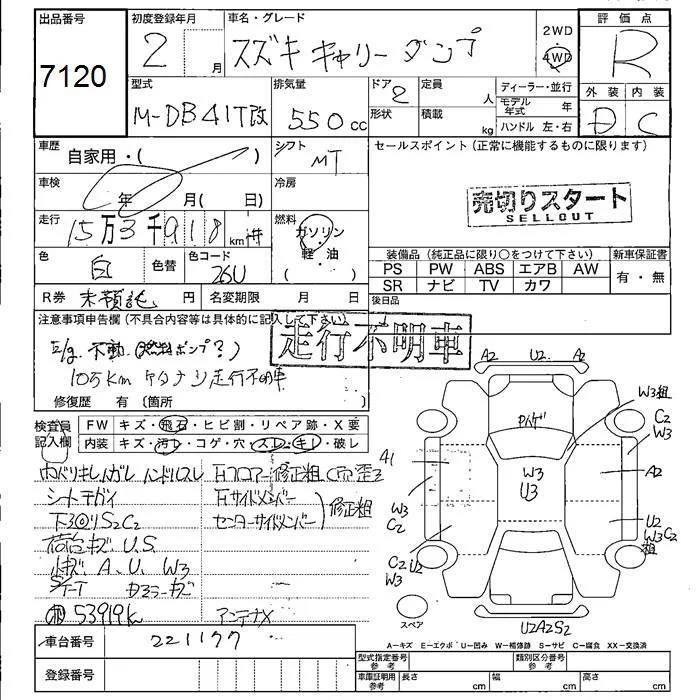 出品番号
7120
初度登録年月
2 月
車名・グレード
スズキ キャリー ダンプ
2WD
4WD
評価点
R
型式
M-DB41T改
排気量
550cc
ドア
2
形状
定員
人
積載
kg
ディーラー・並行
モデル年式 年
ハンドル 左・右
外装 内装
D C
車歴
自家用・( )
シフト
MT
セールスポイント (正常に機能するものに限ります)
売切りスタート
SELLOUT
車検
年 月( 日)
冷房
走行
15万3千918km
燃料
ガソリン
軽・油
( )
色
白
色替
色コード
26U
装備品 (純正品に限り○をつけて下さい)
新車保証書
PS PW ABS エアB AW
SR ナビ TV カワ
有・無
R券 未預託 円
名変期限 月 日
後日品
注意事項申告欄 (不具合内容等は具体的に記入して下さい)
走行不明車
不動 (燃料ポンプ?)
10万km 走行不明車
修復歴 有 (箇所 )
検査員記入欄
FW キズ・飛石・ヒビ割・リペア跡・X要
内装 キズ・汚レ・コゲ・穴・スレ・キレ・破レ
内バリキレ ハンドルスレ
シートテガイ
下3回りS2C2
荷台キズ.U.S.
小キズ A.U.W3
S/T-T
53919k
右フロアー修正粗
右サイドメンバー
センターサイドメンバー
修正粗
アンテナX
A2 U2 A2
ダンプ
W3粗
C2
W3
A1
W3
U3
A2
W3
C2
U2
W3C2
粗
C2 U2
W3
スペア
U2A2S2
A-キズ E-エクボ U-凹み W-補修跡 S-サビ C-腐食 XX-交換済
車台番号
221177
登録番号
型式指定番号 参考
類別区分番号 参考
車庫証明用 参考
長さ cm 幅 cm 高さ cm